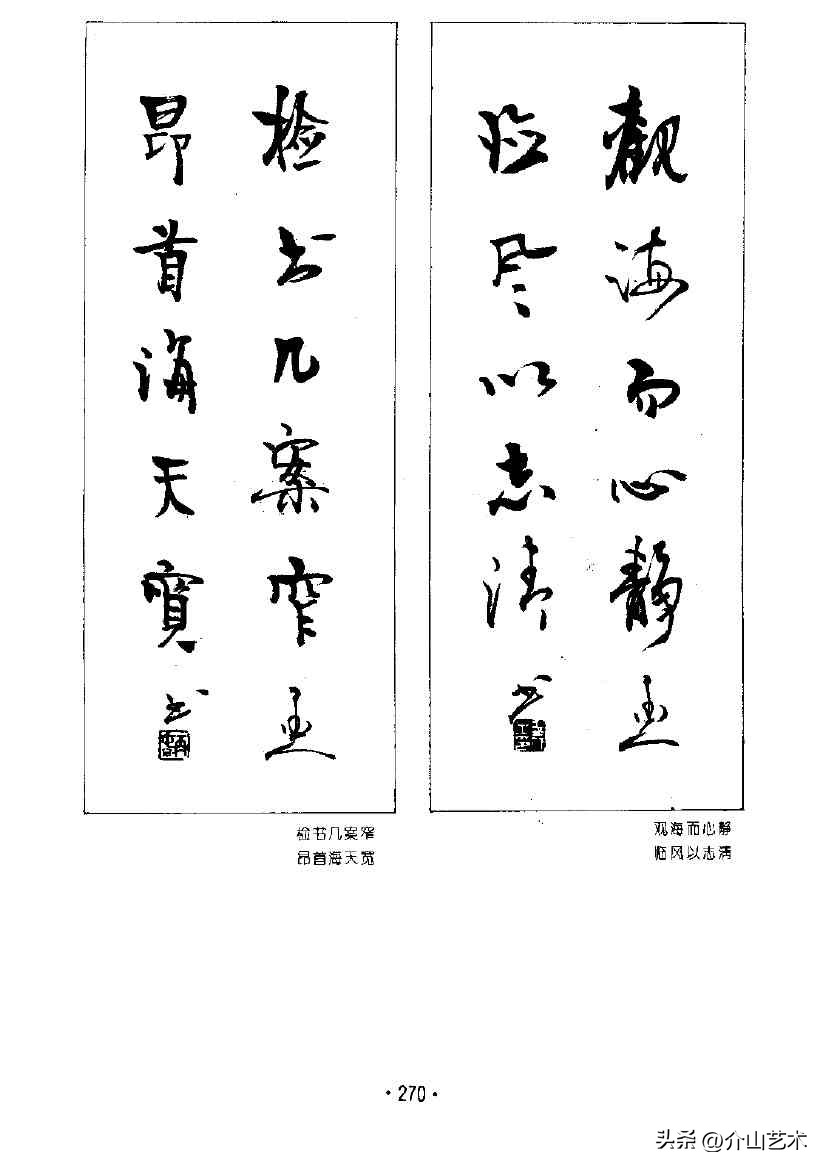 觀海而心靜
临风以志清 书
检书几案窄
昂首海天寬 书
观海而心静
临风以志清
检书几案窄
昂首海天宽
·270·
头条 @介山艺术